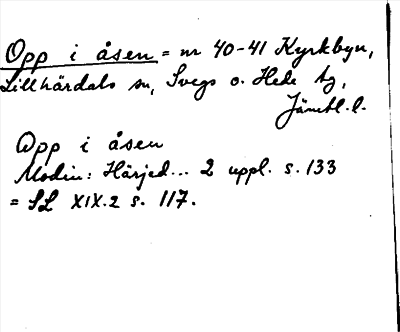 Opp i åsen = nr 40-41 Kyrkbyn,
Lillhärdals sn, Svegs o. Hede tg,
Jämtl. l.
Opp i åsen
Modin: Härjed... 2 uppl. s. 133
= SL XIX.2 s. 117.